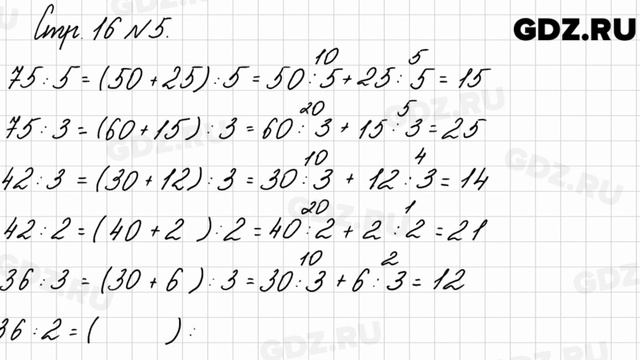 Стр. 16 №5.
GDZ.RU
10 5
75 : 5 = (50 + 25) : 5 = 50 : 5 + 25 : 5 = 15
20 5
75 : 3 = (60 + 15) : 3 = 60 : 3 + 15 : 3 = 25
10 4
42 : 3 = (30 + 12) : 3 = 30 : 3 + 12 : 3 = 14
20 1
42 : 2 = (40 + 2 ) : 2 = 40 : 2 + 2 : 2 = 21
10 2
36 : 3 = (30 + 6 ) : 3 = 30 : 3 + 6 : 3 = 12
36 : 2 = ( ) :